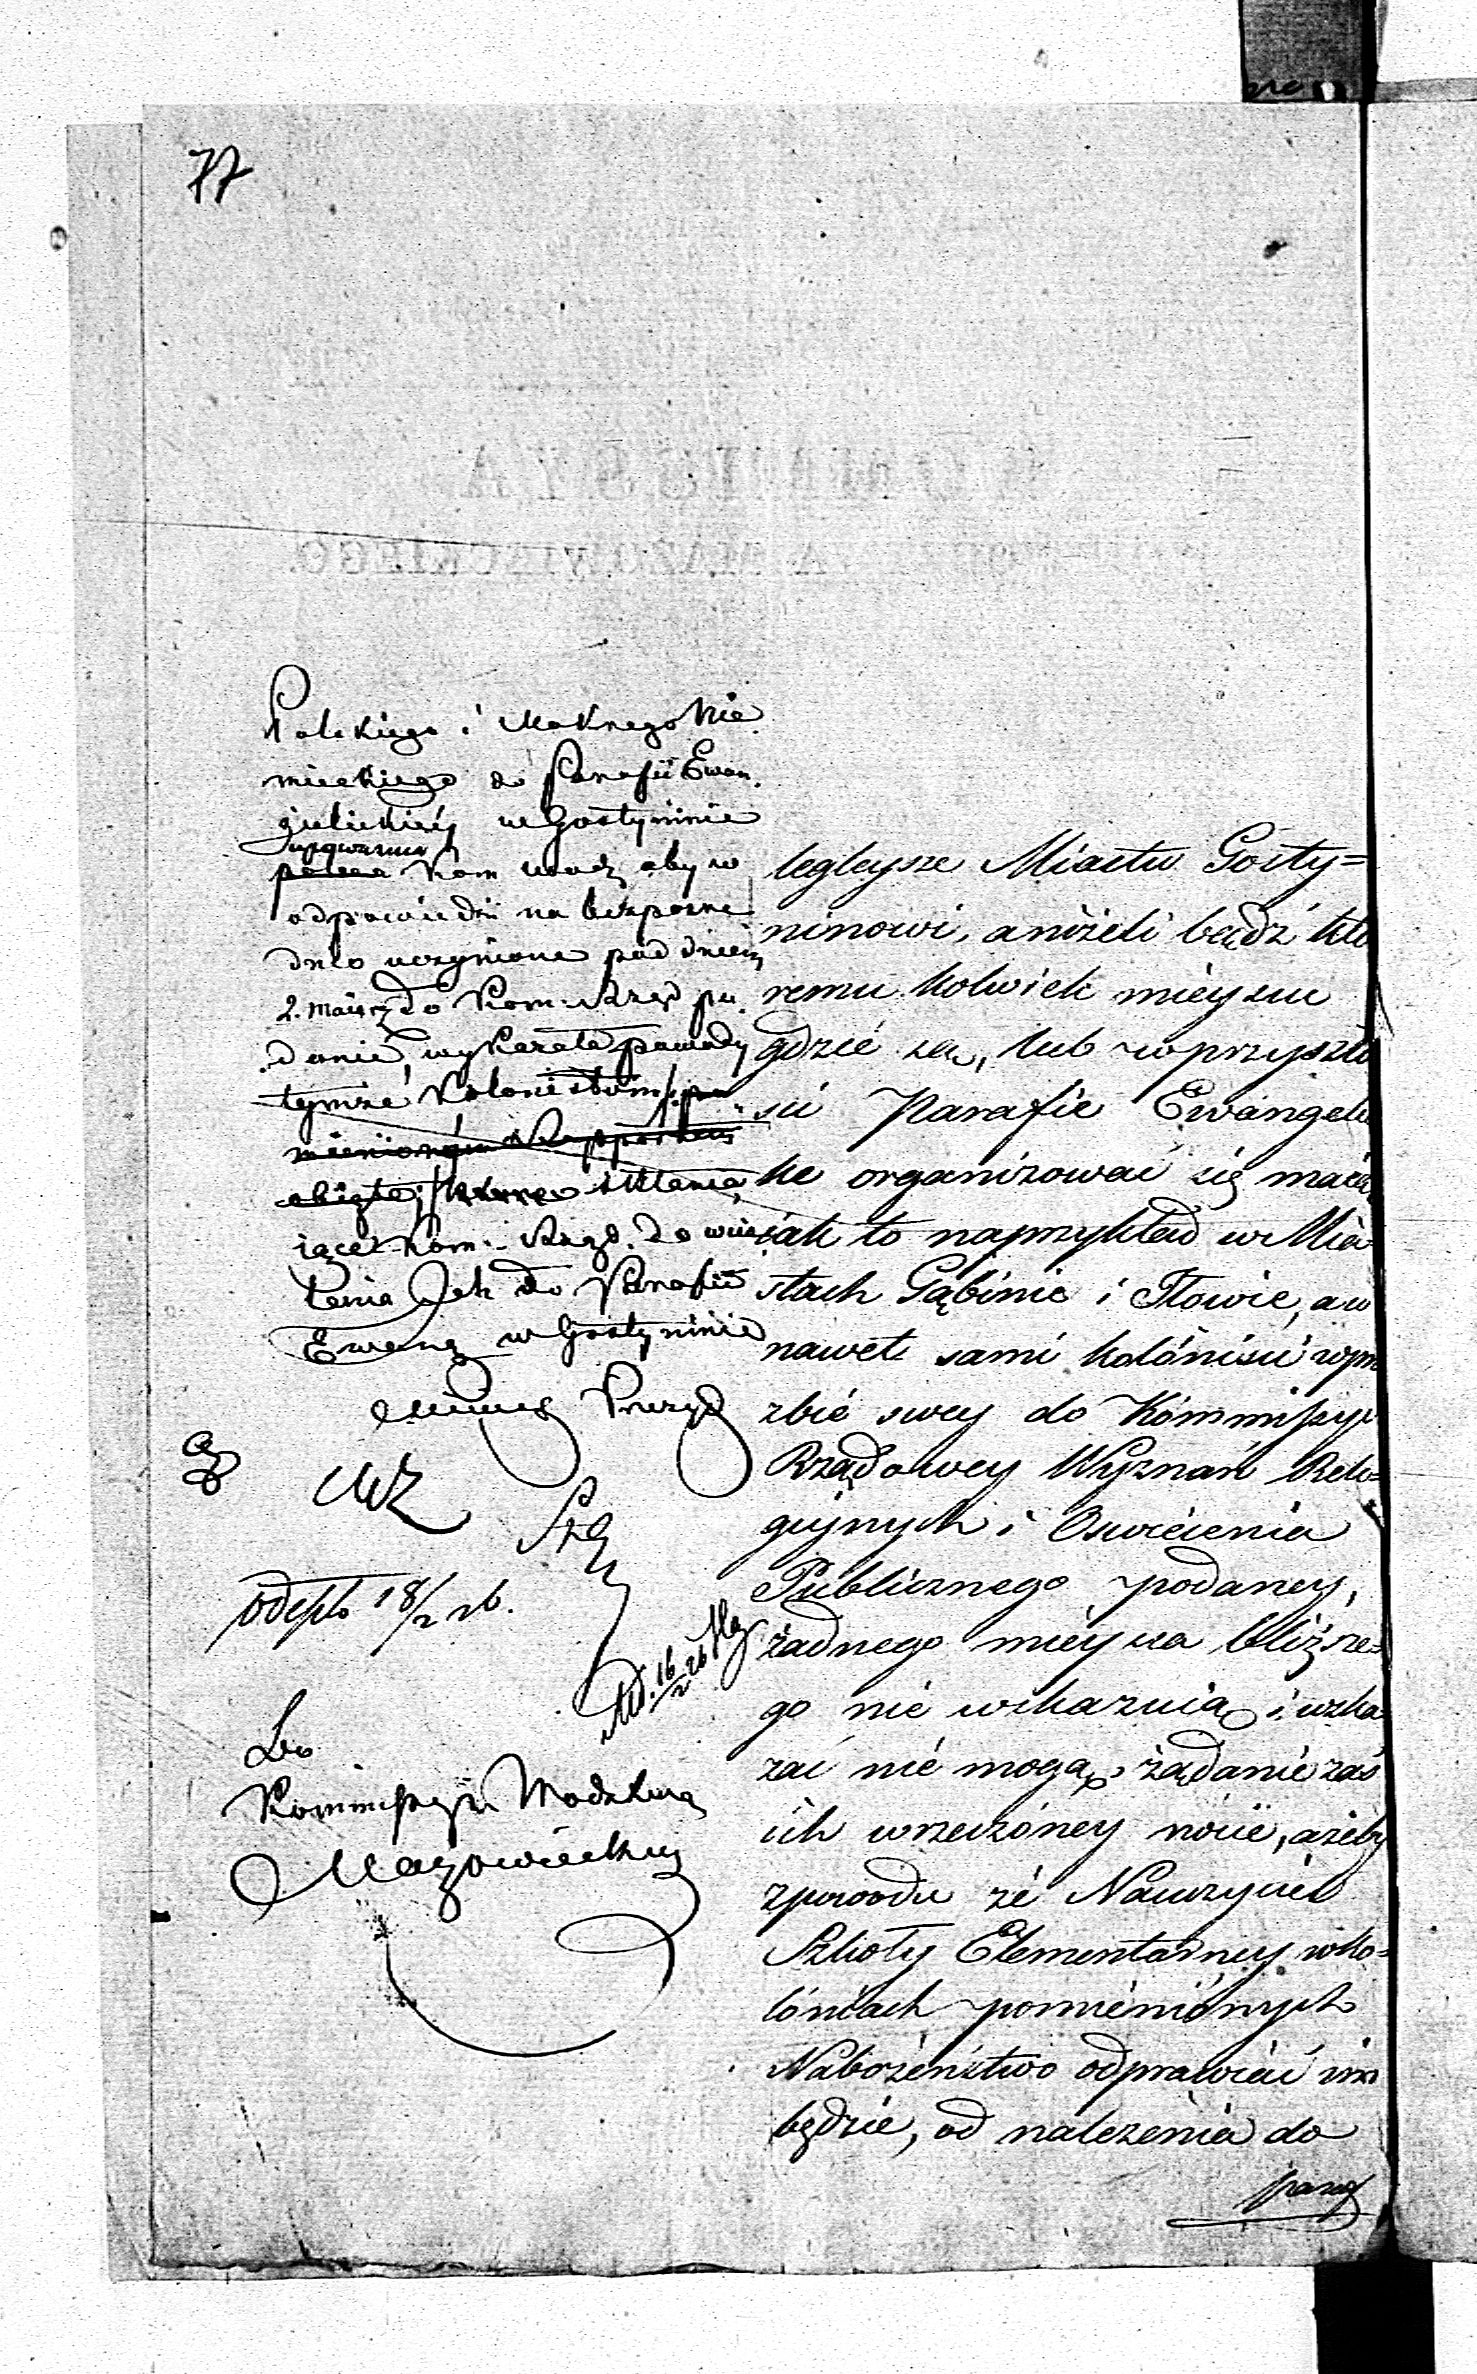 77
Polskiego i Mokrego Nie
mieckiego do Parafii Ewan
gielickiéy w Gostyninie
upoważnia
poleca Kom Wodz aby w
odpowiedzi na bezpośre
dnio uczynione pod dniem
2. do Kom. Rząd po
danie, wykazała powody
tymże Kolonistom
Rapportem
skłania
iące Kom. Rząd. do wcie
lenia ich do Parafii
Ewang w Gostyninie
Minis Prezyd
odeszło 18/2 26.
16/2 26
Do
Kommissyi Wodztwa
Mazowieckiego
legleysze Miastu Gosty=
ninowi, aniżeli bądź któ
remu kolwiek mieyscu
gdzie są, lub w przyszło
ści Parafie Ewangeli
ke organizować się maią
iak to naprzykład w Mia
stach Gąbinie i Iłowie, a w
nawet sami kolóniści w proź
zbie swey do Kómmissyi
Rządowey Wyznań Reli=
giynych i Oświecenia
Publicznego podaney,
żadnego mieysca bliższe=
go nie wskazuią i wska
zać nie mogą, żądanie zaś
ich w rzeczóney nócie, ażeby
z powodu że Nauczyciel
Szkoły Elementarney w ko=
lóniach pomieniónych
Nabożeństwo odprawiać im
będzie, od należenia do
para